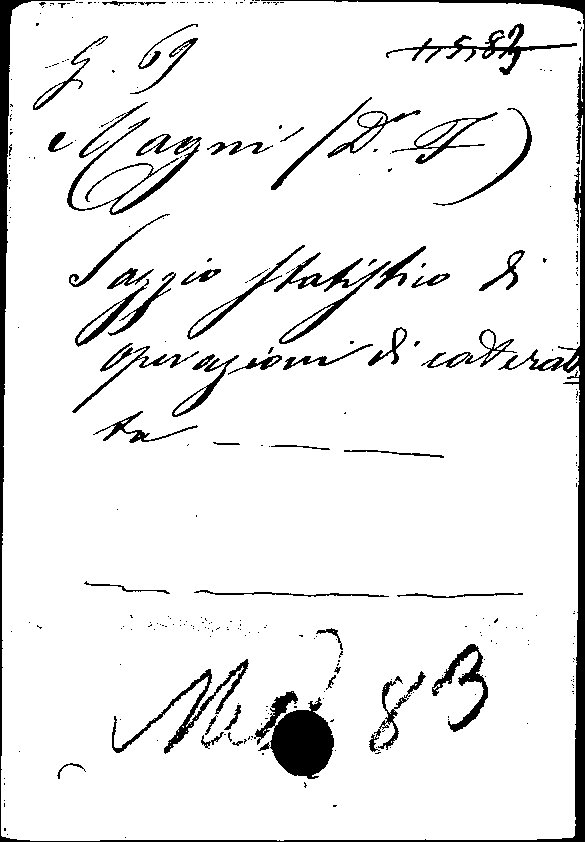 G. 69
1,5,83
Magni (Dr. F)
Saggio statistico di
operazioni di caterat=
ta
Med 83